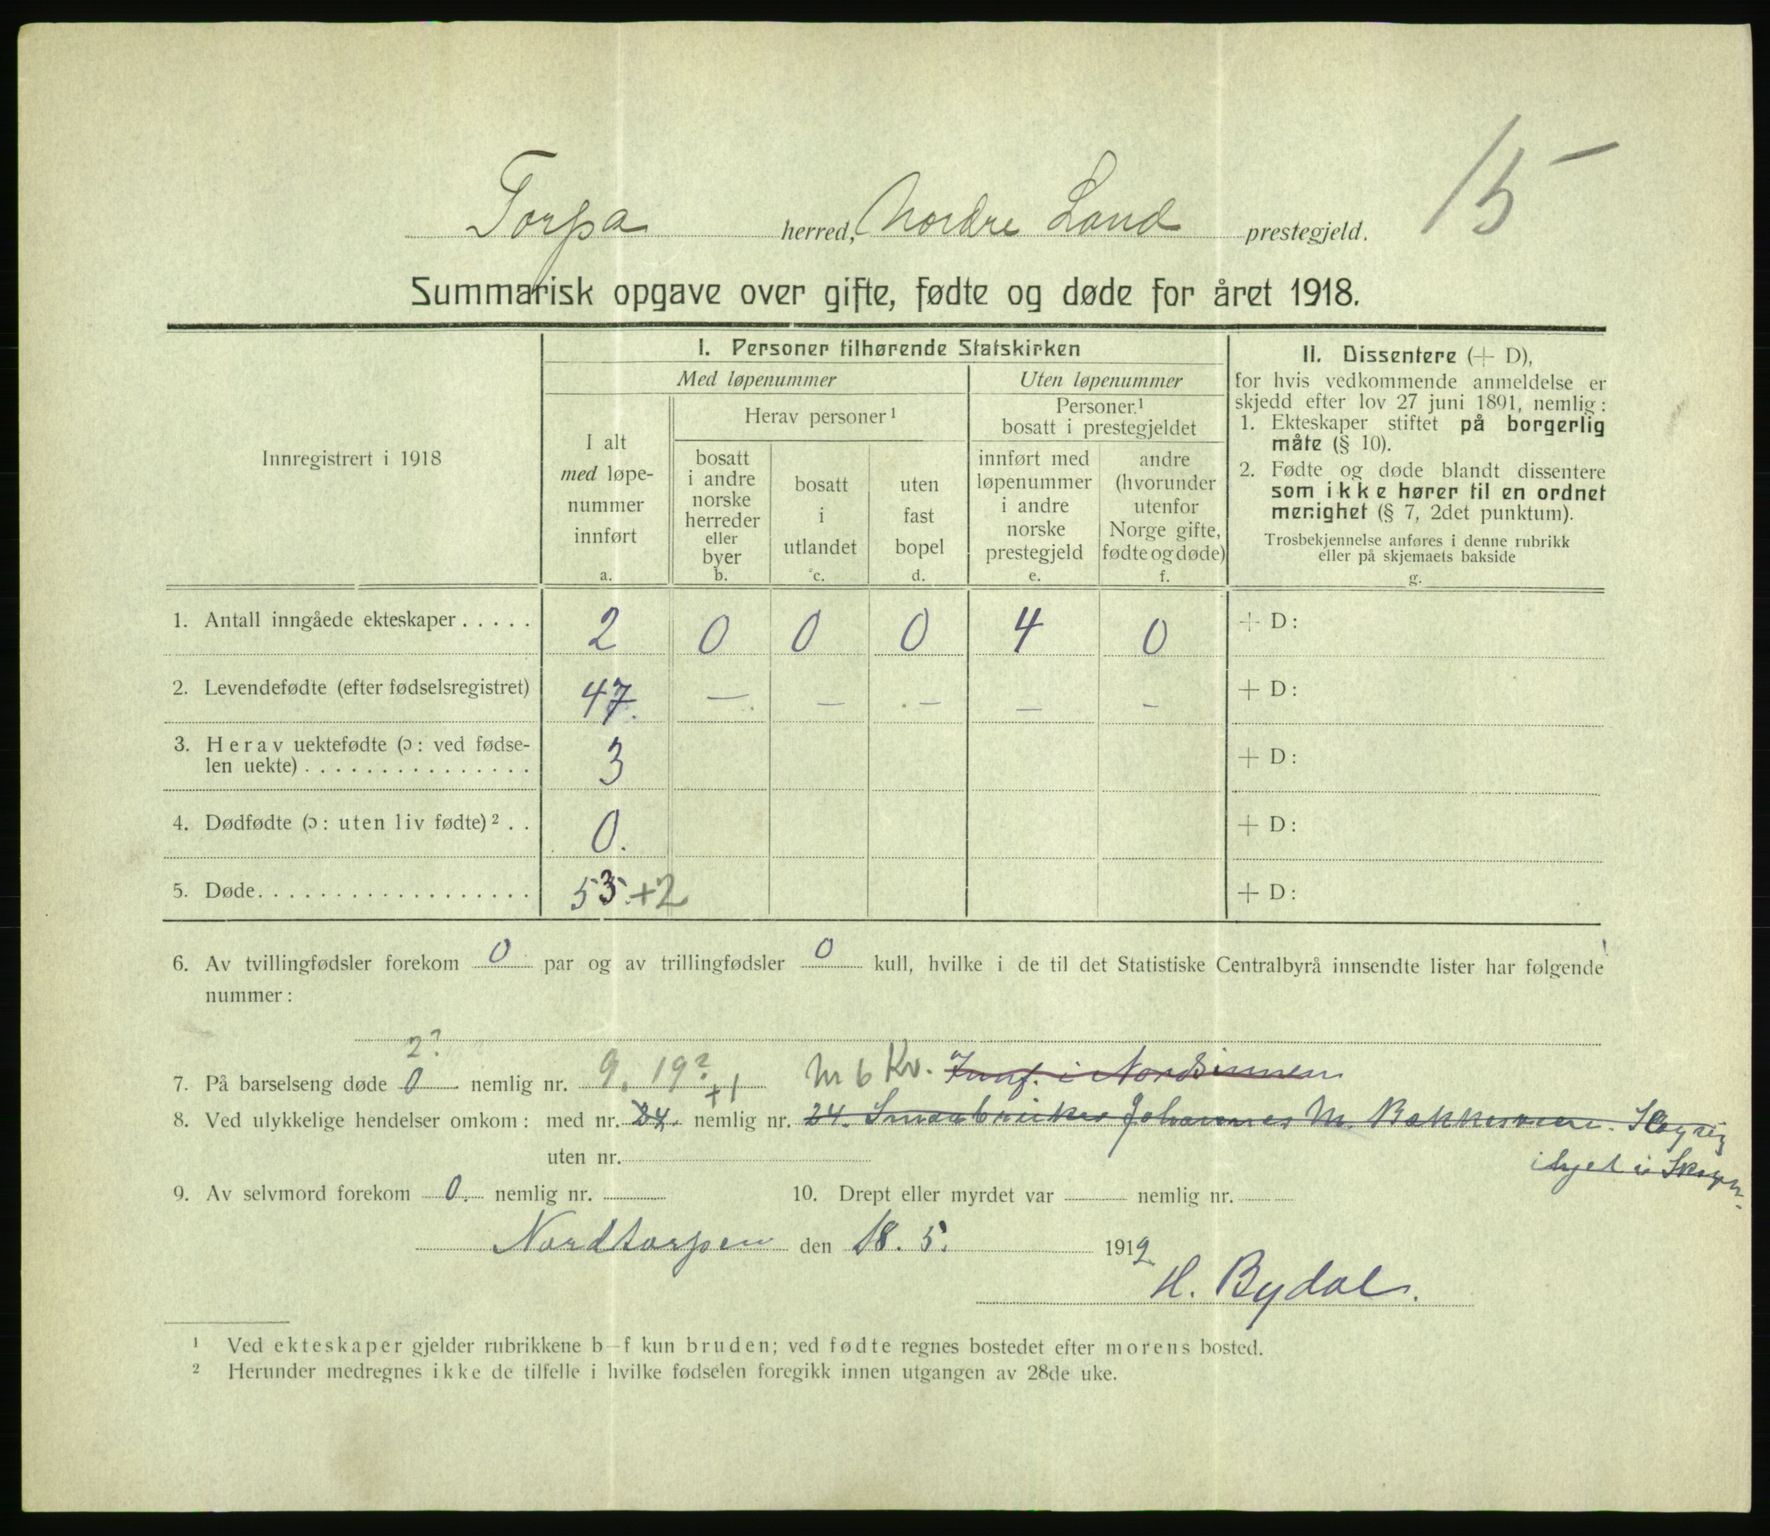 15
Torpa herred, Nordre Land prestegjeld.
Summarisk opgave over gifte, fødte og døde for året 1918.
Innregistrert i 1918
I. Personer tilhørende Statskirken
Med løpenummer
Uten løpenummer
I alt
med løpe-
nummer
innført
a.
Herav personer¹
bosatt
i andre
norske
herreder
eller
byer
b.
bosatt
i
utlandet
c.
uten
fast
bopel
d.
Personer.¹
bosatt i prestegjeldet
innført med
løpenummer
i andre
norske
prestegjeld
e.
andre
(hvorunder
utenfor
Norge gifte,
fødte og døde)
f.
II. Dissentere (+ D),
for hvis vedkommende anmeldelse er
skjedd efter lov 27 juni 1891, nemlig:
1. Ekteskaper stiftet på borgerlig
måte (§ 10).
2. Fødte og døde blandt dissentere
som ikke hører til en ordnet
menighet (§ 7, 2det punktum).
Trosbekjennelse anføres i denne rubrikk
eller på skjemaets bakside
g.
1. Antall inngåede ekteskaper . . . . . 2 0 0 0 4 0 + D:
2. Levendefødte (efter fødselsregistret) 47. — — — — — + D:
3. Herav uektefødte (ɔ: ved fødse-
len uekte) . . . . . . . . . . . . . . . 3 + D:
4. Dødfødte (ɔ: uten liv fødte)² . . 0. + D:
5. Døde. . . . . . . . . . . . . . . . . . 53 +2 + D:
6. Av tvillingfødsler forekom 0 par og av trillingfødsler 0 kull, hvilke i de til det Statistiske Centralbyrå innsendte lister har følgende
nummer:
2?
7. På barselseng døde 0 nemlig nr. 9. 19? M 6 Kv. i Nordsinnen
+1
8. Ved ulykkelige hendelser omkom: med nr. 24. nemlig nr. 24. Smaabruker Johannes M.
uten nr.
9. Av selvmord forekom 0. nemlig nr. 10. Drept eller myrdet var nemlig nr.
Nordtorpen den 18. 5. 1919
H. Bydal.
¹ Ved ekteskaper gjelder rubrikkene b–f kun bruden; ved fødte regnes bostedet efter morens bosted.
² Herunder medregnes ikke de tilfelle i hvilke fødselen foregikk innen utgangen av 28de uke.